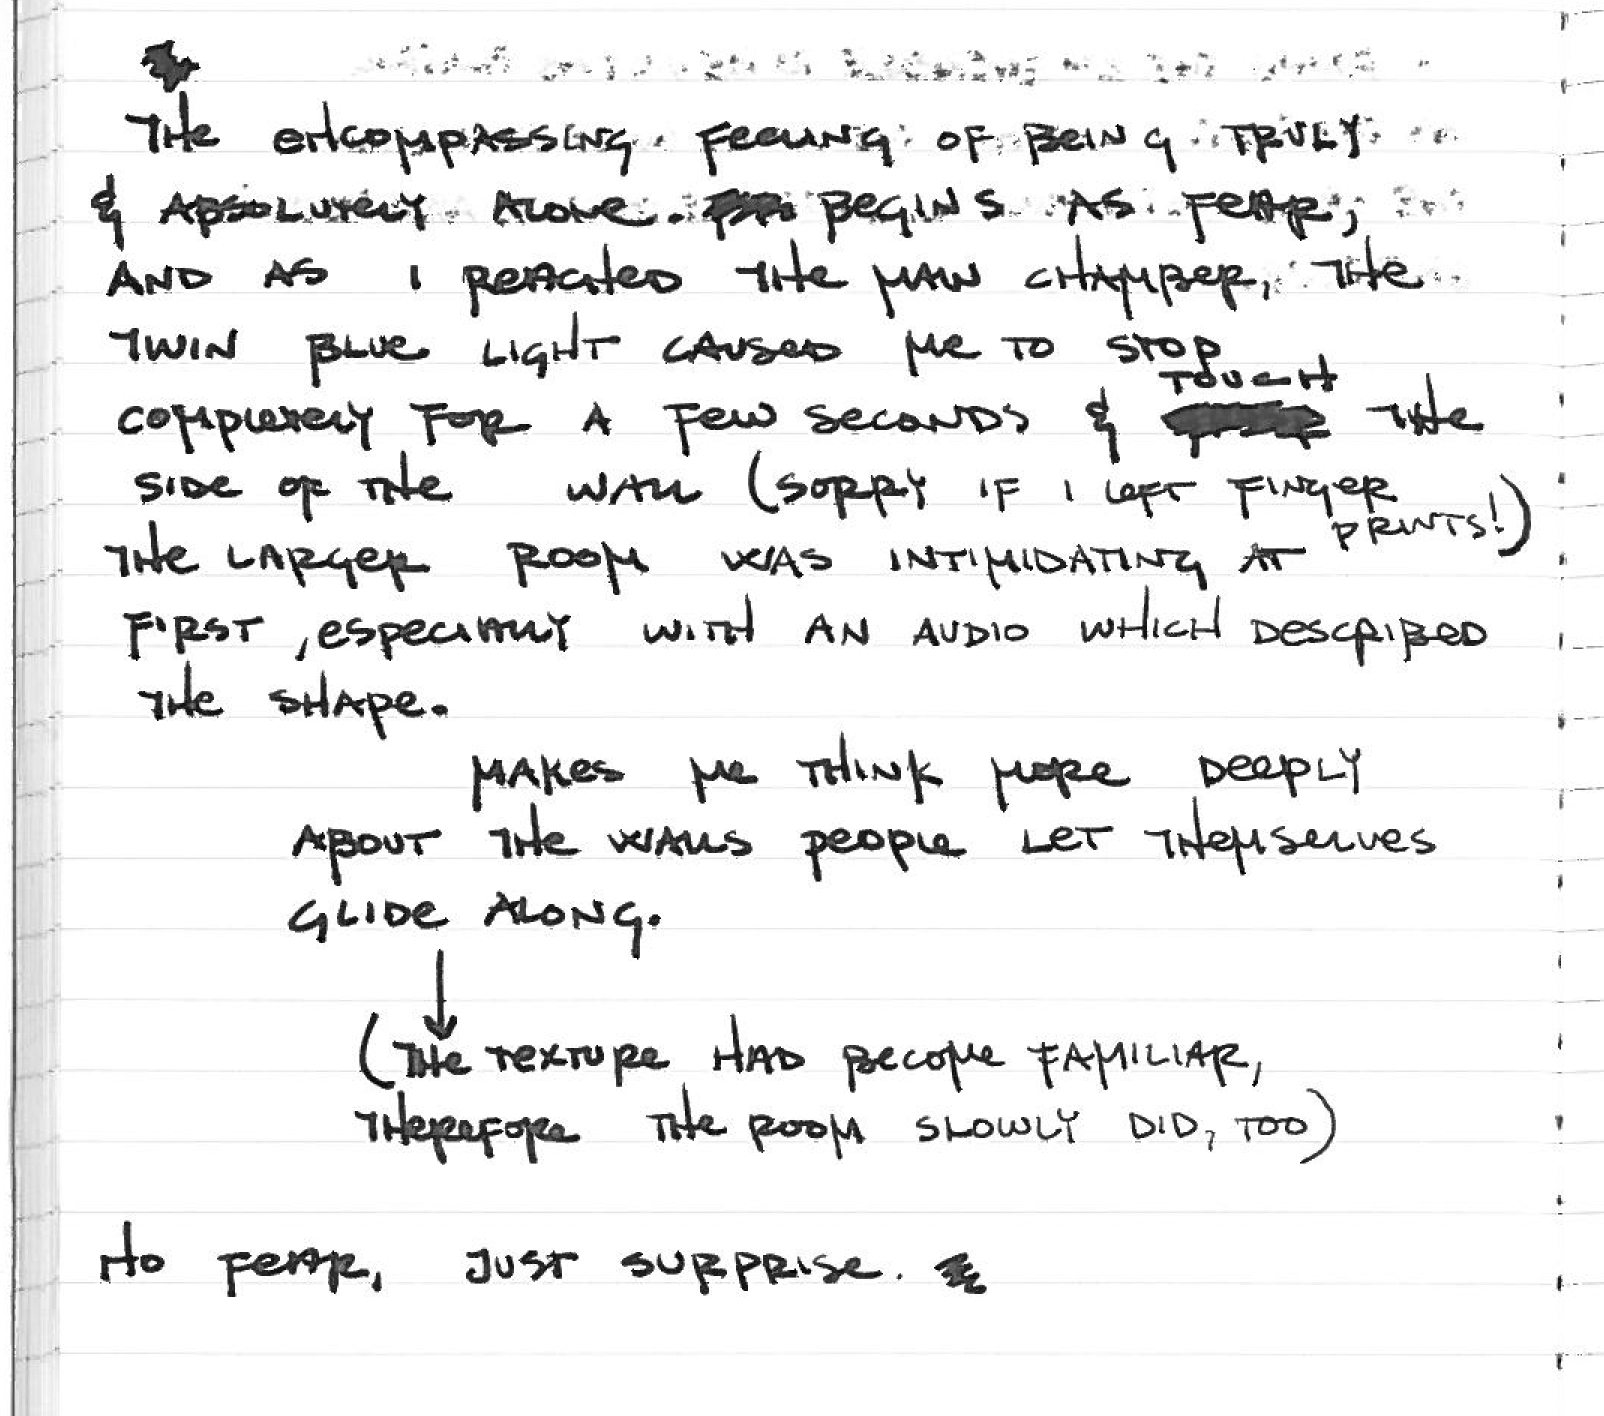 THE ENCOMPASSING FEELING OF BEING TRULY
& ABSOLUTELY ALONE. BEGINS AS FEAR,
AND AS I REACHED THE MAIN CHAMBER, THE
TWIN BLUE LIGHT CAUSED ME TO STOP
TOUCH
COMPLETELY FOR A FEW SECONDS & THE
SIDE OF THE WALL (SORRY IF I LEFT FINGER
PRINTS!)
THE LARGER ROOM WAS INTIMIDATING AT
FIRST, ESPECIALLY WITH AN AUDIO WHICH DESCRIBED
THE SHAPE.
MAKES ME THINK MORE DEEPLY
ABOUT THE WALLS PEOPLE LET THEMSELVES
GLIDE ALONG.
(THE TEXTURE HAD BECOME FAMILIAR,
THEREFORE THE ROOM SLOWLY DID, TOO)
NO FEAR, JUST SURPRISE.